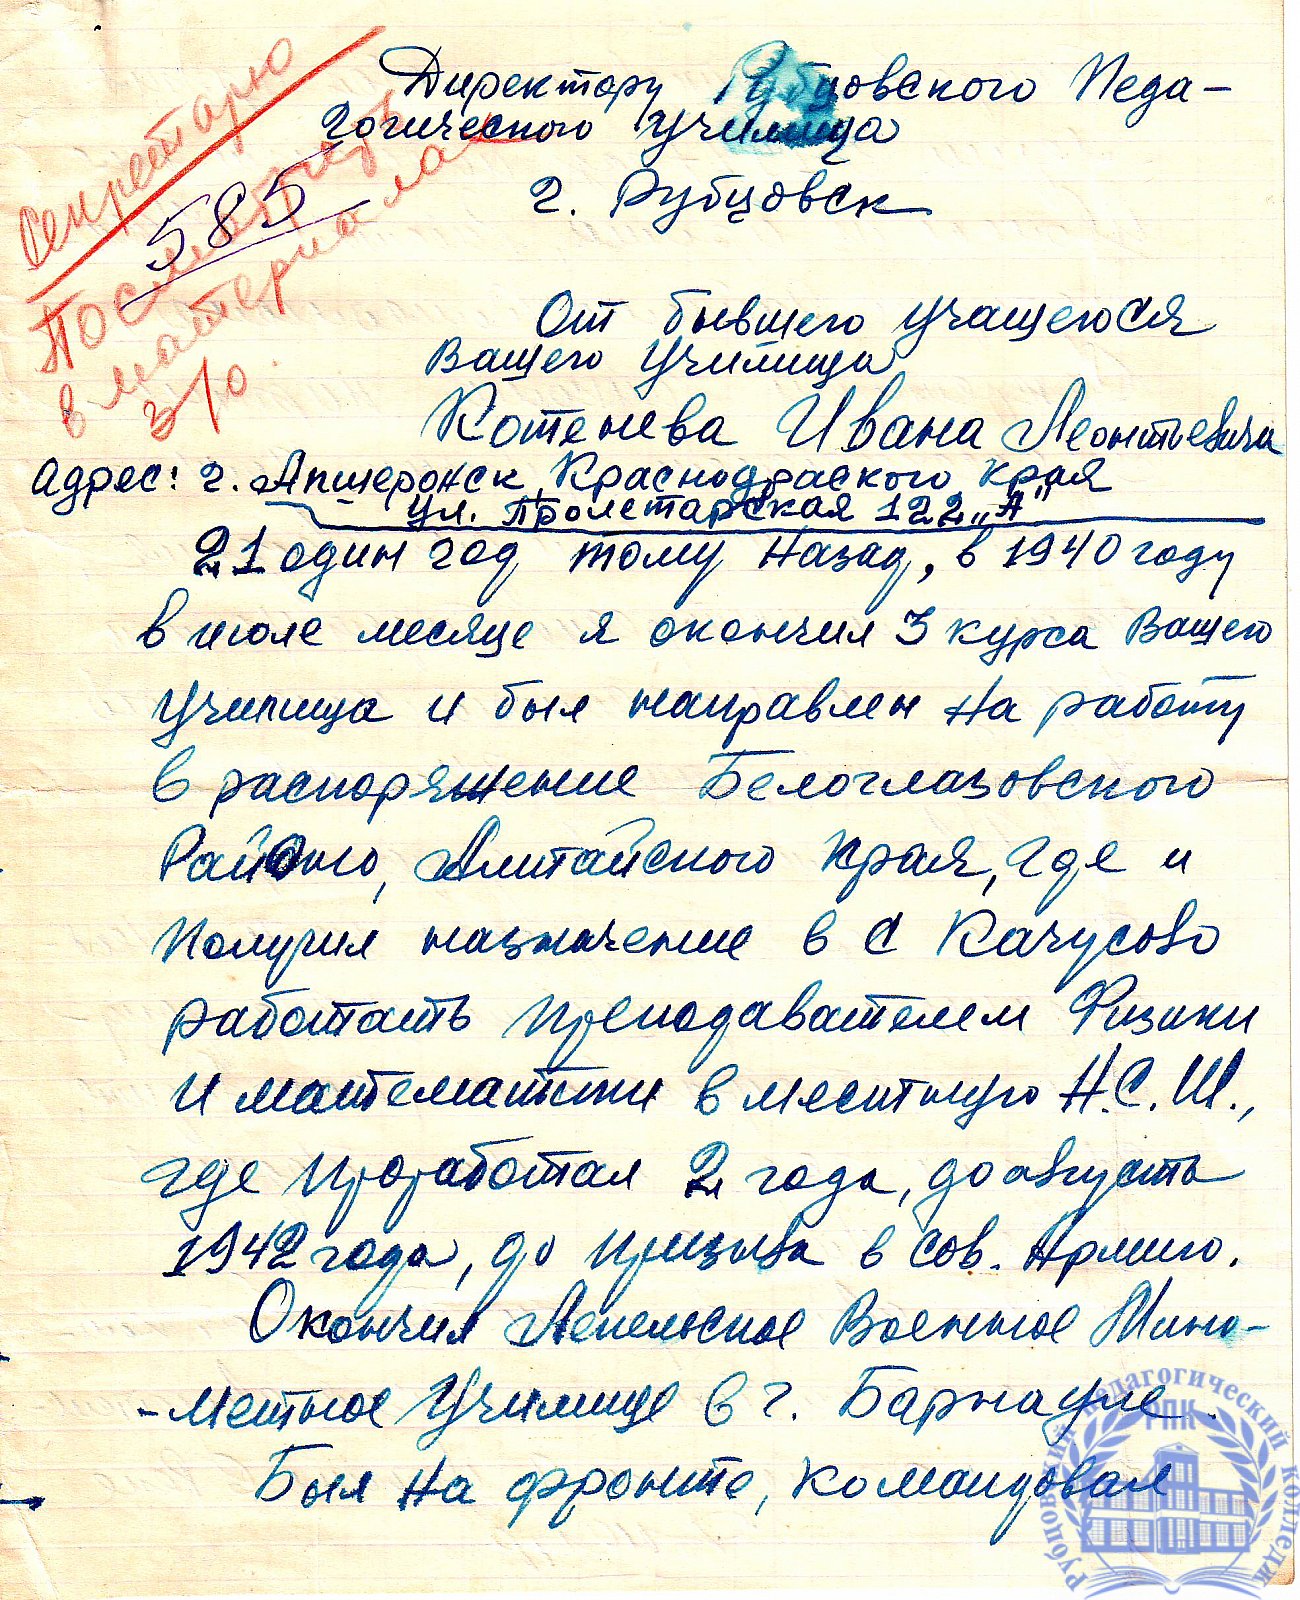 Директору Рубцовского Педа-
гогического училища
г. Рубцовск
Секретарю
585
Посмотреть
в материалах
З/О.
От бывшего учащегося
Вашего училища
Котенева Ивана Леонтьевича
Адрес: г. Апшеронск, Краснодраского края
ул. Пролетарская 122 „А"
21 один год тому назад, в 1940 году
в июле месяце я окончил 3 курса Вашего
училища и был направлен на работу
в распоряжение Белоглазовского
РайОно, Алтайского края, где и
получил назначение в с Качусово
работать преподавателем Физики
и математики в местную Н.С.Ш.,
где проработал 2 года, до августа
1942 года, до призыва в Сов. Армию.
Окончил Лепельское Военное Мино-
-метное Училище в г. Барнауле.
Был на фронте, командовал
Рубцовский педагогический колледж
РПК